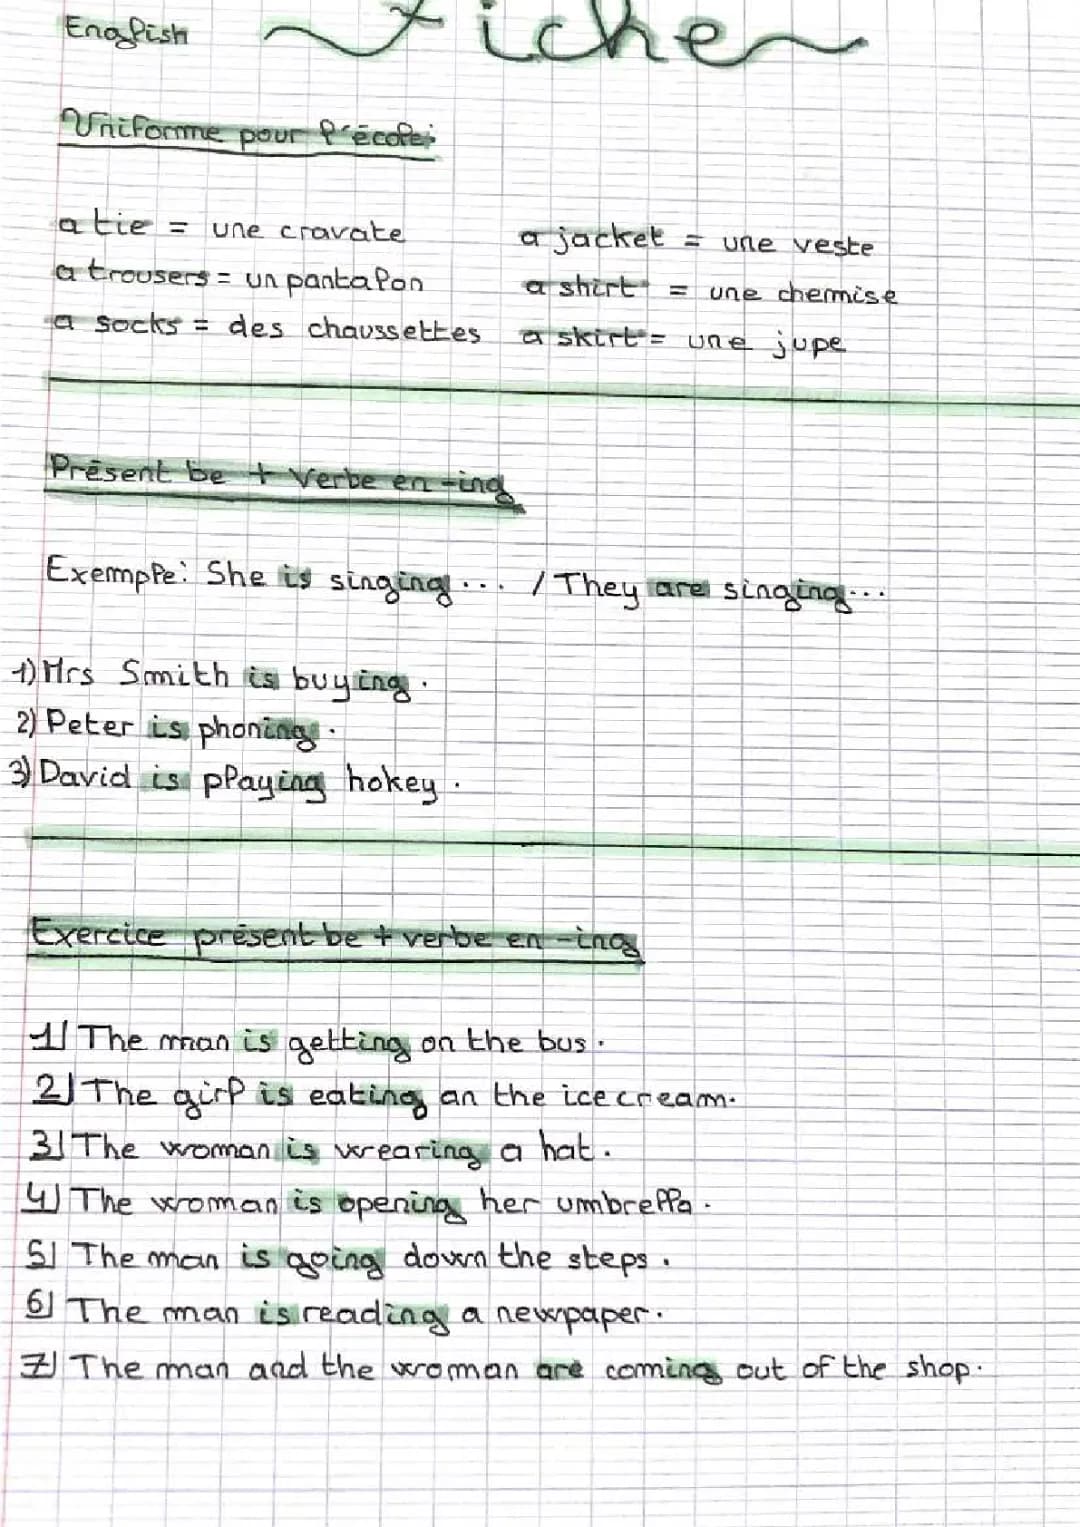 English
Fiche
Uniforme pour l'école:
a tie = une cravate
a jacket = une veste
a trousers = un pantalon
a shirt = une chemise
a socks = des chaussettes
a skirt = une jupe
Présent be + verbe en -ing
Exemple: She is singing... / They are singing...
1) Mrs Smith is buying.
2) Peter is phoning.
3) David is playing hokey.
Exercice présent be + verbe en -ing
1) The man is getting on the bus.
2) The girl is eating an the ice cream.
3) The woman is wearing a hat.
4) The woman is opening her umbrella.
5) The man is going down the steps.
6) The man is reading a newpaper.
7) The man and the woman are coming out of the shop.